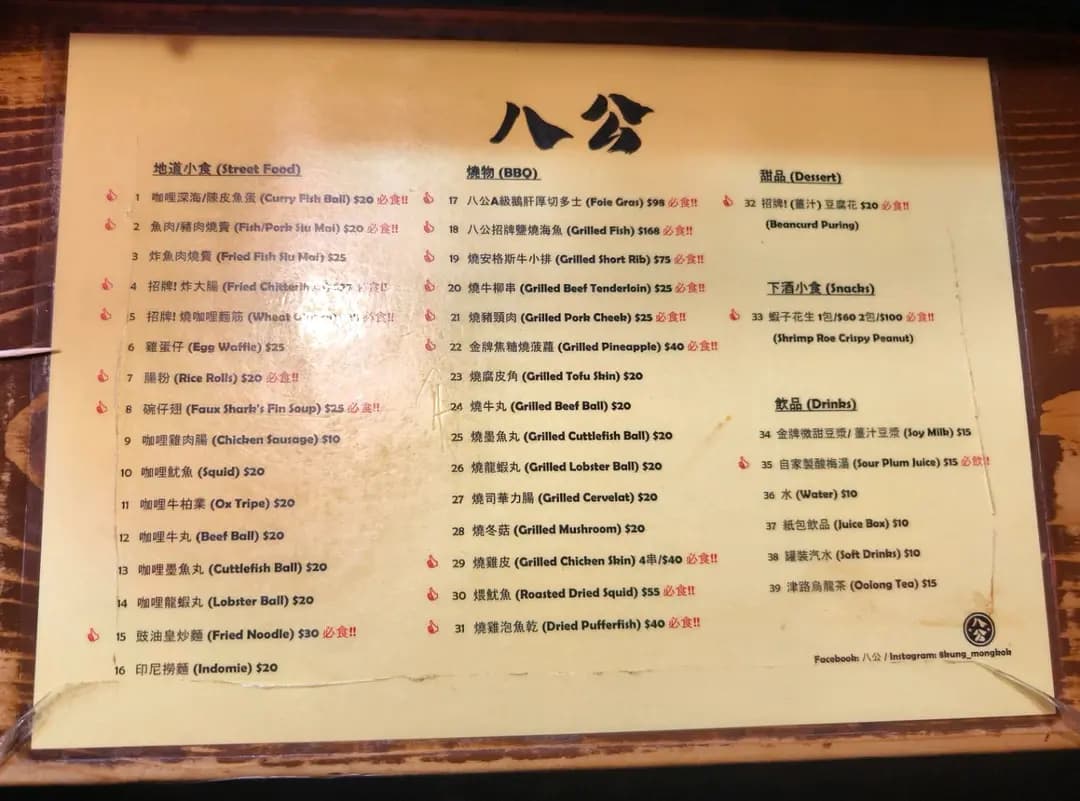 八公
地道小食 (Street Food)
1 咖哩深海/陳皮魚蛋 (Curry Fish Ball) $20 必食!!
2 魚肉/豬肉燒賣 (Fish/Pork Siu Mai) $20 必食!!
3 炸魚肉燒賣 (Fried Fish Siu Mai) $25
4 招牌! 炸大腸 (Fried 必食!!
5 招牌! 燒咖哩麵筋 (Wheat 必食!!
6 雞蛋仔 (Egg Waffle) $25
7 腸粉 (Rice Rolls) $20 必食!!
8 碗仔翅 (Faux Shark's Fin Soup) $25 必食!!
9 咖哩雞肉腸 (Chicken Sausage) $10
10 咖哩魷魚 (Squid) $20
11 咖哩牛柏業 (Ox Tripe) $20
12 咖哩牛丸 (Beef Ball) $20
13 咖哩墨魚丸 (Cuttlefish Ball) $20
14 咖哩龍蝦丸 (Lobster Ball) $20
15 豉油皇炒麵 (Fried Noodle) $30 必食!!
16 印尼撈麵 (Indomie) $20
燒物 (BBQ)
17 八公A級鵝肝厚切多士 (Foie Gras) $98 必食!!
18 八公招牌鹽燒海魚 (Grilled Fish) $168 必食!!
19 燒安格斯牛小排 (Grilled Short Rib) $75 必食!!
20 燒牛柳串 (Grilled Beef Tenderloin) $25 必食!!
21 燒豬頸肉 (Grilled Pork Cheek) $25 必食!!
22 金牌焦糖燒菠蘿 (Grilled Pineapple) $40 必食!!
23 燒腐皮角 (Grilled Tofu Skin) $20
24 燒牛丸 (Grilled Beef Ball) $20
25 燒墨魚丸 (Grilled Cuttlefish Ball) $20
26 燒龍蝦丸 (Grilled Lobster Ball) $20
27 燒司華力腸 (Grilled Cervelat) $20
28 燒冬菇 (Grilled Mushroom) $20
29 燒雞皮 (Grilled Chicken Skin) 4串/$40 必食!!
30 煨魷魚 (Roasted Dried Squid) $55 必食!!
31 燒雞泡魚乾 (Dried Pufferfish) $40 必食!!
甜品 (Dessert)
32 招牌! (薑汁) 豆腐花 $20 必食!!
(Beancurd Puring)
下酒小食 (Snacks)
33 蝦子花生 1包/$60 2包/$100 必食!!
(Shrimp Roe Crispy Peanut)
飲品 (Drinks)
34 金牌微甜豆漿/ 薑汁豆漿 (Soy Milk) $15
35 自家製酸梅湯 (Sour Plum Juice) $15 必飲!!
36 水 (Water) $10
37 紙包飲品 (Juice Box) $10
38 罐裝汽水 (Soft Drinks) $10
39 津路烏龍茶 (Oolong Tea) $15
八公
Facebook: 八公 / Instagram: 8kung_mongkok